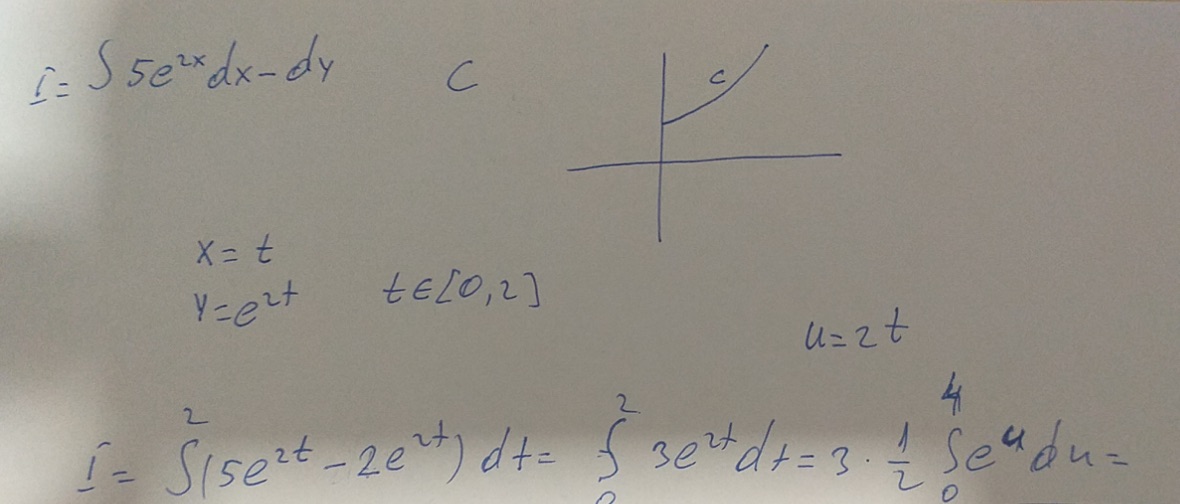 I = ∫ 5e^{2x} dx - dy C
c
x = t
y = e^{2t} t ∈ [0, 2]
u = 2t
I = ∫^2 (5e^{2t} - 2e^{2t}) dt = ∫_0^2 3e^{2t} dt = 3 · 1/2 ∫_0^4 e^u du =